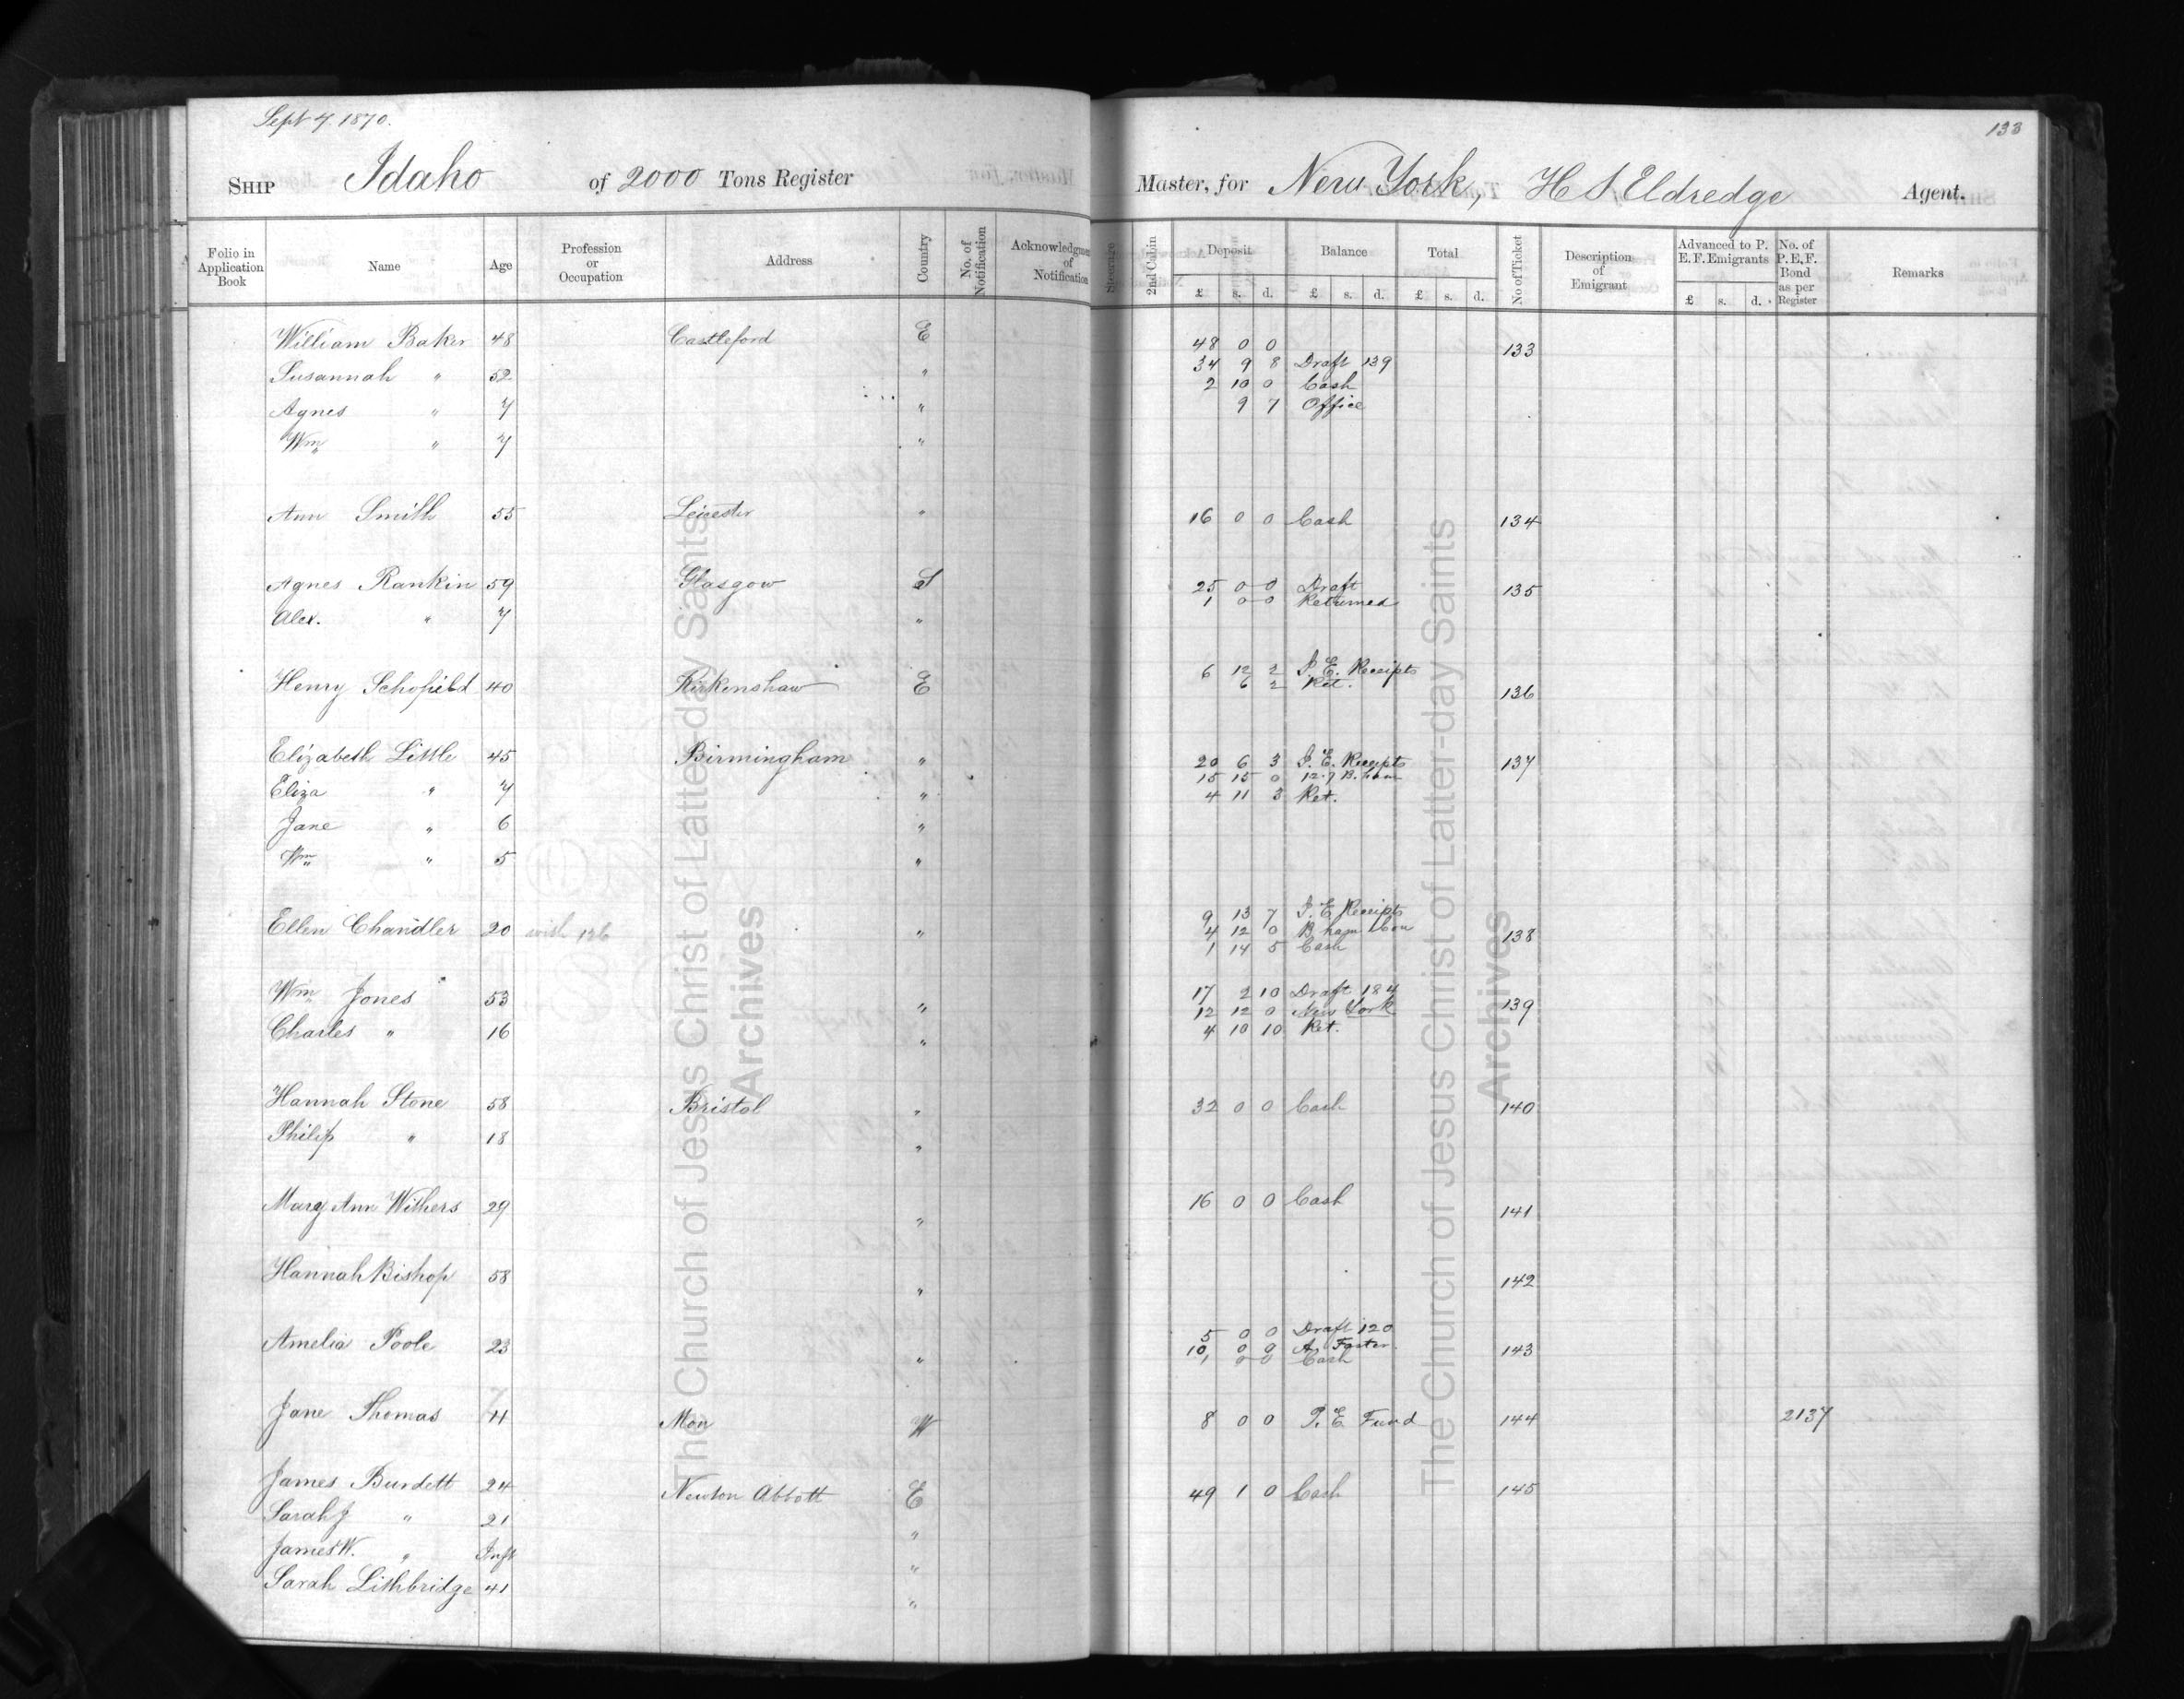 Sept 7. 1870.
133
Ship Idaho of 2000 Tons Register Master, for New York, H S Eldredge Agent.
Folio in Application Book | Name | Age | Profession or Occupation | Address | Country | No. of Notification | Acknowledgment of Notification | Steerage | 2nd Cabin | Deposit £ s. d. | Balance £ s. d. | Total £ s. d. | No of Ticket | Description of Emigrant | Advanced to P. E. F. Emigrants £ s. d. | No. of P. E. F. Bond as per Register | Remarks
William Baker 48 Castleford E 48 0 0 133
34 9 8 Draft 139
Susannah " 52 " 2 10 0 Cash
Agnes " 7 " 9 7 Office
Wm " 7 "
Ann Smith 55 Leicester " 16 0 0 Cash 134
Agnes Rankin 59 Glasgow S 25 0 0 Draft 135
1 0 0 Returned
Alex. " 7 "
Henry Schofield 40 Kirkenshaw E 6 12 2 P. E. Receipts 136
6 2 Ret.
Elizabeth Little 45 Birmingham " 20 6 3 P. E. Receipts 137
15 15 0 12.7 B.ham
Eliza " 7 " 4 11 3 Ret.
Jane " 6 "
Wm " 5 "
9 13 7 P. E Receipts
Ellen Chandler 20 with 136 " 4 12 0 B ham Con 138
1 14 5 Cash
Wm Jones 53 " 17 2 10 Draft 184 139
12 12 0 New York
Charles " 16 " 4 10 10 Ret.
Hannah Stone 58 Bristol " 32 0 0 Cash 140
Philip " 18 "
Mary Ann Withers 29 " 16 0 0 Cash 141
Hannah Bishop 58 " 142
5 0 0 Draft 120
Amelia Poole 23 " 10 0 0 A. Foster 143
1 0 0 Cash
Jane Thomas 41 Mon W 8 0 0 P. E Fund 144 2137
James Burdett 24 Newton Abbott E 49 1 0 Cash 145
Sarah J " 21 "
James W. " Inft "
Sarah Lithbridge 41 "
The Church of Jesus Christ of Latter-day Saints
Archives
The Church of Jesus Christ of Latter-day Saints
Archives